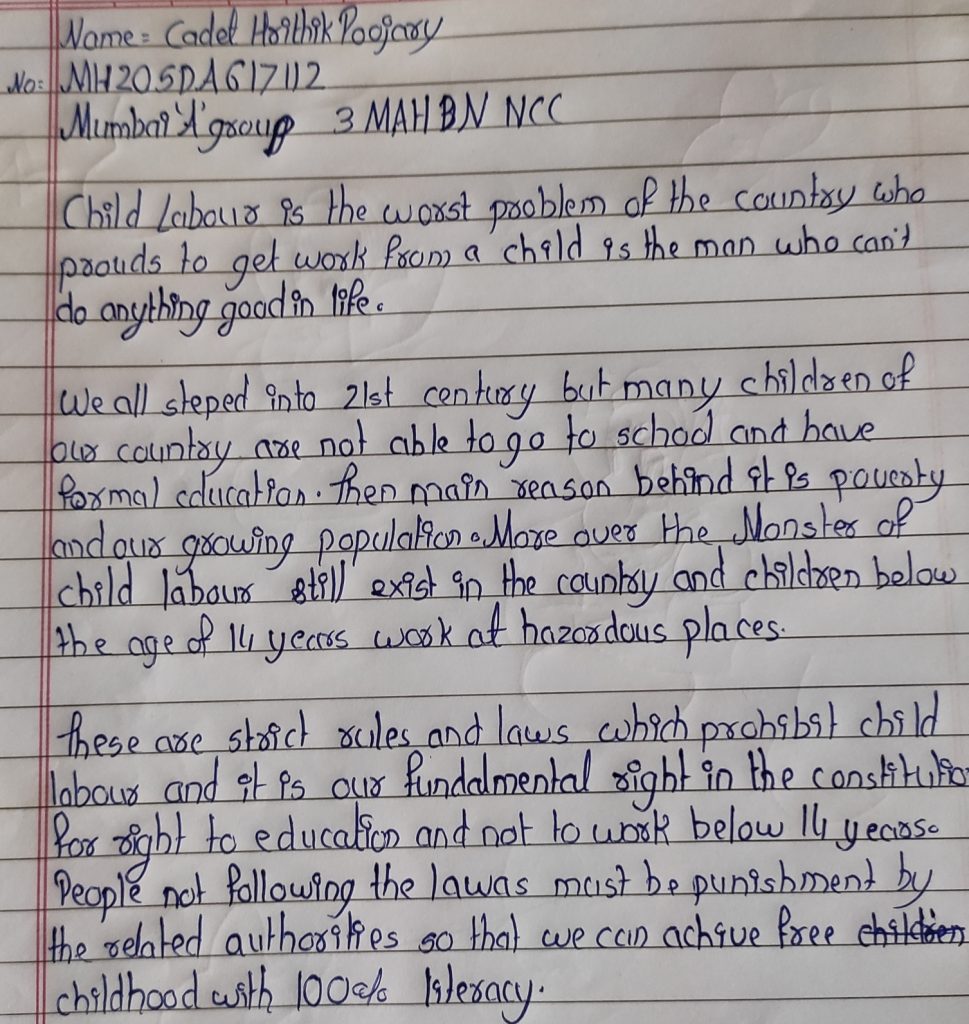 Name= Cadet Hrithik Poojary
No: MH20SDA617112
Mumbai 'A' group 3 MAH BN NCC
Child Labour is the worst problem of the country who
prouds to get work from a child is the man who can't
do anything good in life.
We all steped into 21st century but many children of
our country are not able to go to school and have
formal education. Then main reason behind it is poverty
and our growing population. More over the Monster of
child labour still exist in the country and children below
the age of 14 years work at hazordous places.
These are strict rules and laws which prohibit child
labour and it is our fundalmental right in the constitutio
for right to education and not to work below 14 years.
People not following the lawas must be punishment by
the related authorities so that we can achive free children
childhood with 100% literacy.